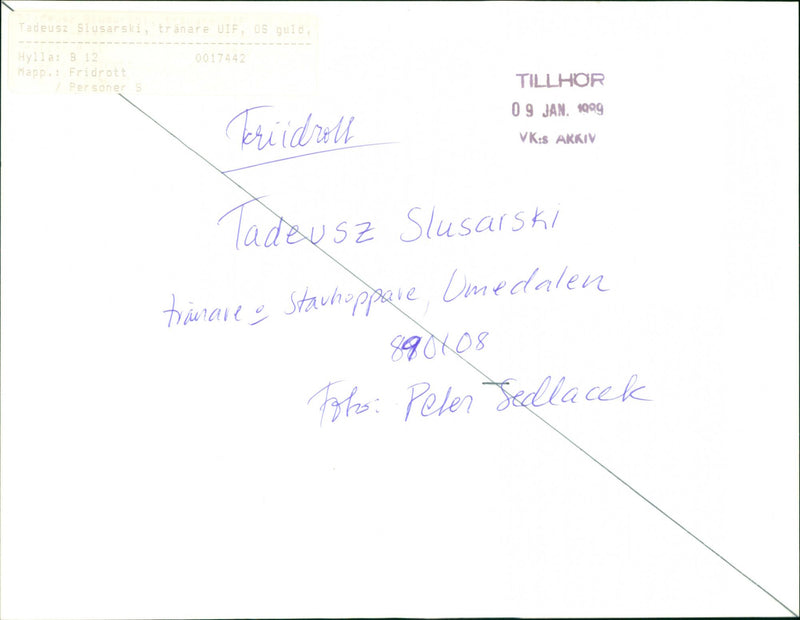 Tadeusz Slusarski, tränare UIF, OS guld,
Hylla: B 12 0017442
Mapp.: Fridrott
/ Personer S
TILLHÖR
09 JAN. 1989
VK:s ARKIV
Friidrott
Tadeusz Slusarski
tränare o stavhoppare, Umedalen
890108
Foto: Peter Sedlacek